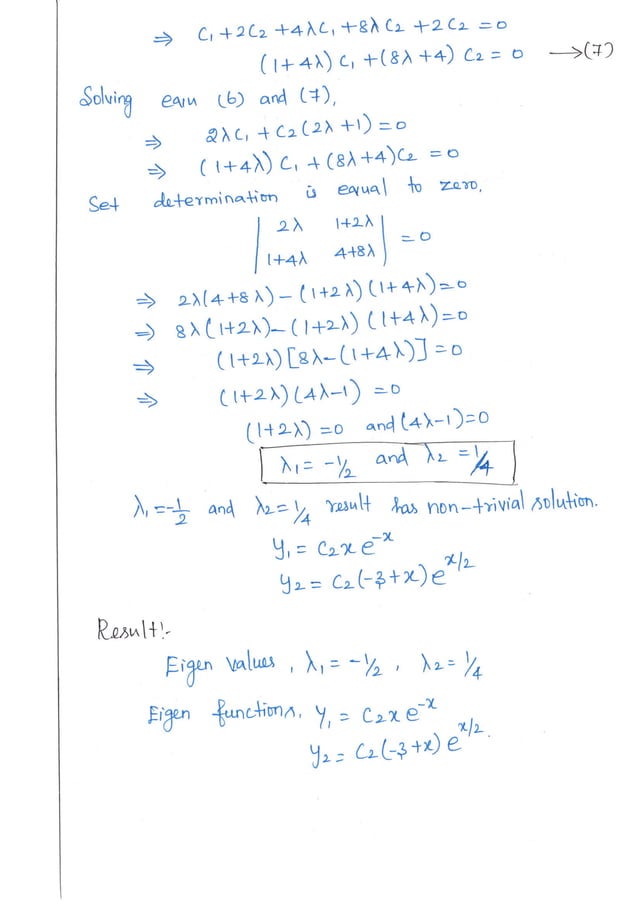 ⇒ C₁+2C₂+4λC₁+8λC₂+2C₂=0
(1+4λ)C₁+(8λ+4)C₂=0 →(7)
Solving eqrn (6) and (7),
⇒ 2λC₁+C₂(2λ+1)=0
⇒ (1+4λ)C₁+(8λ+4)C₂=0
Set determination is equal to zero,
|2λ 1+2λ|
|1+4λ 4+8λ| =0
⇒ 2λ(4+8λ)-(1+2λ)(1+4λ)=0
⇒ 8λ(1+2λ)-(1+2λ)(1+4λ)=0
⇒ (1+2λ)[8λ-(1+4λ)]=0
⇒ (1+2λ)(4λ-1)=0
(1+2λ)=0 and (4λ-1)=0
λ₁=-1/2 and λ₂=1/4
λ₁=-1/2 and λ₂=1/4 result has non-trivial solution.
y₁=C₂xe⁻ˣ
y₂=C₂(-3+x)e^{x/2}
Result:-
Eigen values, λ₁=-1/2, λ₂=1/4
Eigen functions, y₁=C₂xe⁻ˣ
y₂=C₂(-3+x)e^{x/2}.